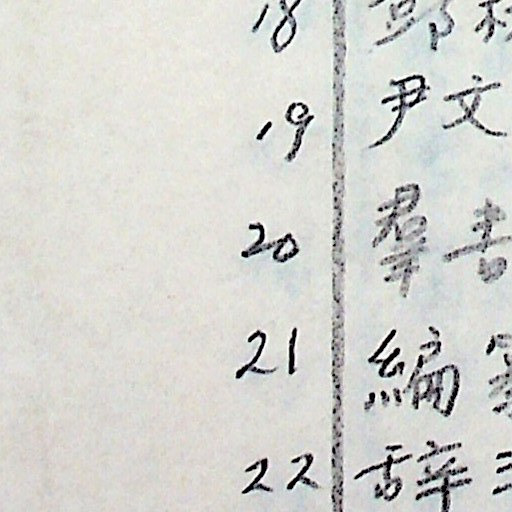 18 鄧
19 尹文
20 羣書
21 編
22 辞